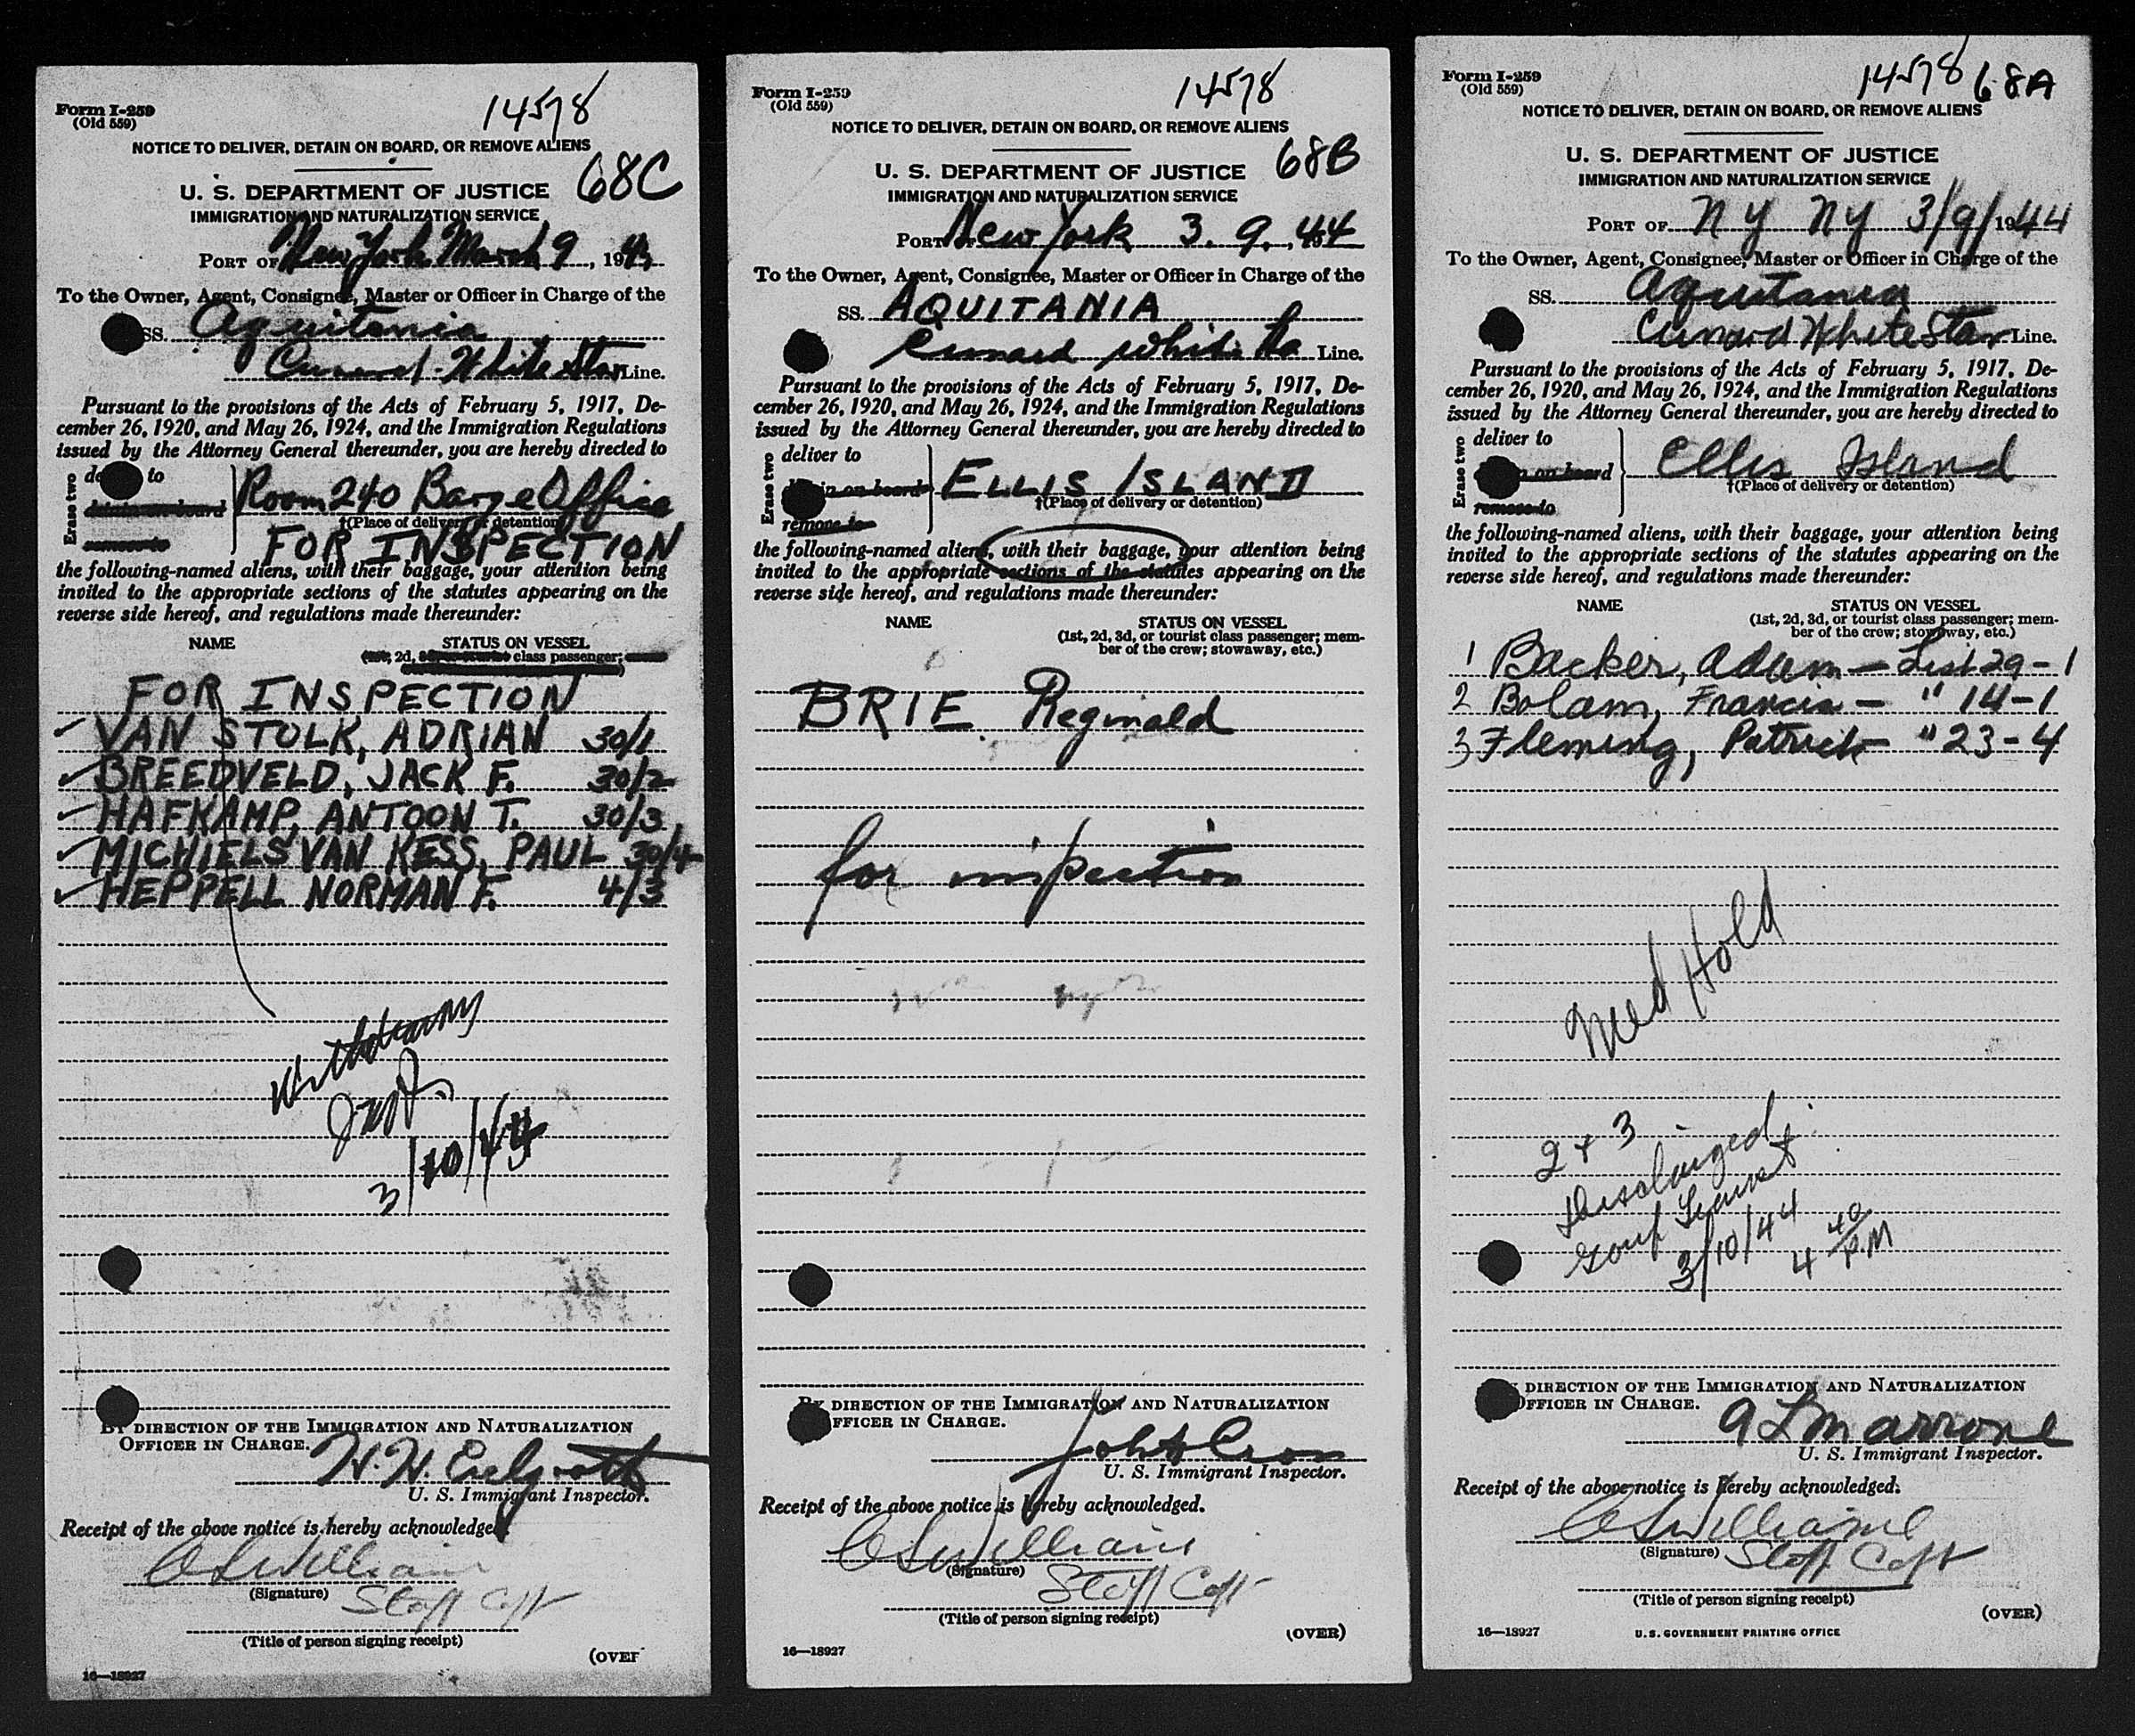 Form I-259
(Old 559)
14578
NOTICE TO DELIVER, DETAIN ON BOARD, OR REMOVE ALIENS
68C
U. S. DEPARTMENT OF JUSTICE
IMMIGRATION AND NATURALIZATION SERVICE
PORT OF New York March 9, 194
To the Owner, Agent, Consignee, Master or Officer in Charge of the
SS. Aquitania
Cunard-White Star Line.
Pursuant to the provisions of the Acts of February 5, 1917, De-
cember 26, 1920, and May 26, 1924, and the Immigration Regulations
issued by the Attorney General thereunder, you are hereby directed to
Erase two
to
Room 240 Barge Office
†(Place of delivery or detention)
FOR INSPECTION
the following-named aliens, with their baggage, your attention being
invited to the appropriate sections of the statutes appearing on the
reverse side hereof, and regulations made thereunder:
NAME STATUS ON VESSEL
2d, class passenger;
FOR INSPECTION
✓ VAN STOLK, ADRIAN 30/1
✓ BREEDVELD, JACK F. 30/2
✓ HAFKAMP, ANTOON T. 30/3
✓ MICHIELS VAN KESS, PAUL 30/4
✓ HEPPELL NORMAN F. 4/3
3/10/44
BY DIRECTION OF THE IMMIGRATION AND NATURALIZATION
OFFICER IN CHARGE.
U. S. Immigrant Inspector.
Receipt of the above notice is hereby acknowledged.
C S Williams
(Signature)
Staff Capt
(Title of person signing receipt)
(OVER
16—18927
Form I-259
(Old 559)
14578
NOTICE TO DELIVER, DETAIN ON BOARD, OR REMOVE ALIENS
68B
U. S. DEPARTMENT OF JUSTICE
IMMIGRATION AND NATURALIZATION SERVICE
PORT New York 3. 9. 44
To the Owner, Agent, Consignee, Master or Officer in Charge of the
SS. AQUITANIA
Cunard White Line.
Pursuant to the provisions of the Acts of February 5, 1917, De-
cember 26, 1920, and May 26, 1924, and the Immigration Regulations
issued by the Attorney General thereunder, you are hereby directed to
Erase two
deliver to
in on board
remove to
ELLIS ISLAND
†(Place of delivery or detention)
the following-named aliens, with their baggage, your attention being
invited to the appropriate sections of the statutes appearing on the
reverse side hereof, and regulations made thereunder:
NAME STATUS ON VESSEL
(1st, 2d, 3d, or tourist class passenger; mem-
ber of the crew; stowaway, etc.)
BRIE. Reginald
for inspection
BY DIRECTION OF THE IMMIGRATION AND NATURALIZATION
OFFICER IN CHARGE.
U. S. Immigrant Inspector.
Receipt of the above notice is hereby acknowledged.
C S Williams
(Signature)
Staff Capt
(Title of person signing receipt)
(OVER)
16—18927
Form I-259
(Old 559)
14578 68A
NOTICE TO DELIVER, DETAIN ON BOARD, OR REMOVE ALIENS
U. S. DEPARTMENT OF JUSTICE
IMMIGRATION AND NATURALIZATION SERVICE
PORT OF N Y N Y 3/9/1944
To the Owner, Agent, Consignee, Master or Officer in Charge of the
SS. Aquitania
Cunard White Star Line.
Pursuant to the provisions of the Acts of February 5, 1917, De-
cember 26, 1920, and May 26, 1924, and the Immigration Regulations
issued by the Attorney General thereunder, you are hereby directed to
Erase two
deliver to
in on board
remove to
Ellis Island
†(Place of delivery or detention)
the following-named aliens, with their baggage, your attention being
invited to the appropriate sections of the statutes appearing on the
reverse side hereof, and regulations made thereunder:
NAME STATUS ON VESSEL
(1st, 2d, 3d, or tourist class passenger; mem-
ber of the crew; stowaway, etc.)
1 Backer, Adam — List 29-1
2 Bolam, Francis — " 14-1
3 Fleming, Patrick — " 23-4
Med Hold
2 + 3
Discharged
3/10/44
4 40 P.M
DIRECTION OF THE IMMIGRATION AND NATURALIZATION
OFFICER IN CHARGE.
A L Marrone
U. S. Immigrant Inspector.
Receipt of the above notice is hereby acknowledged.
C S Williams
(Signature)
Staff Capt
(Title of person signing receipt)
(OVER)
16—18927
U.S. GOVERNMENT PRINTING OFFICE